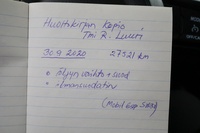 Huoltokirjan kopio
Tmi R. Luuri
30.9.2020 27521 km
* öljyn vaihto + suod.
* ilmansuodatin
(Mobil